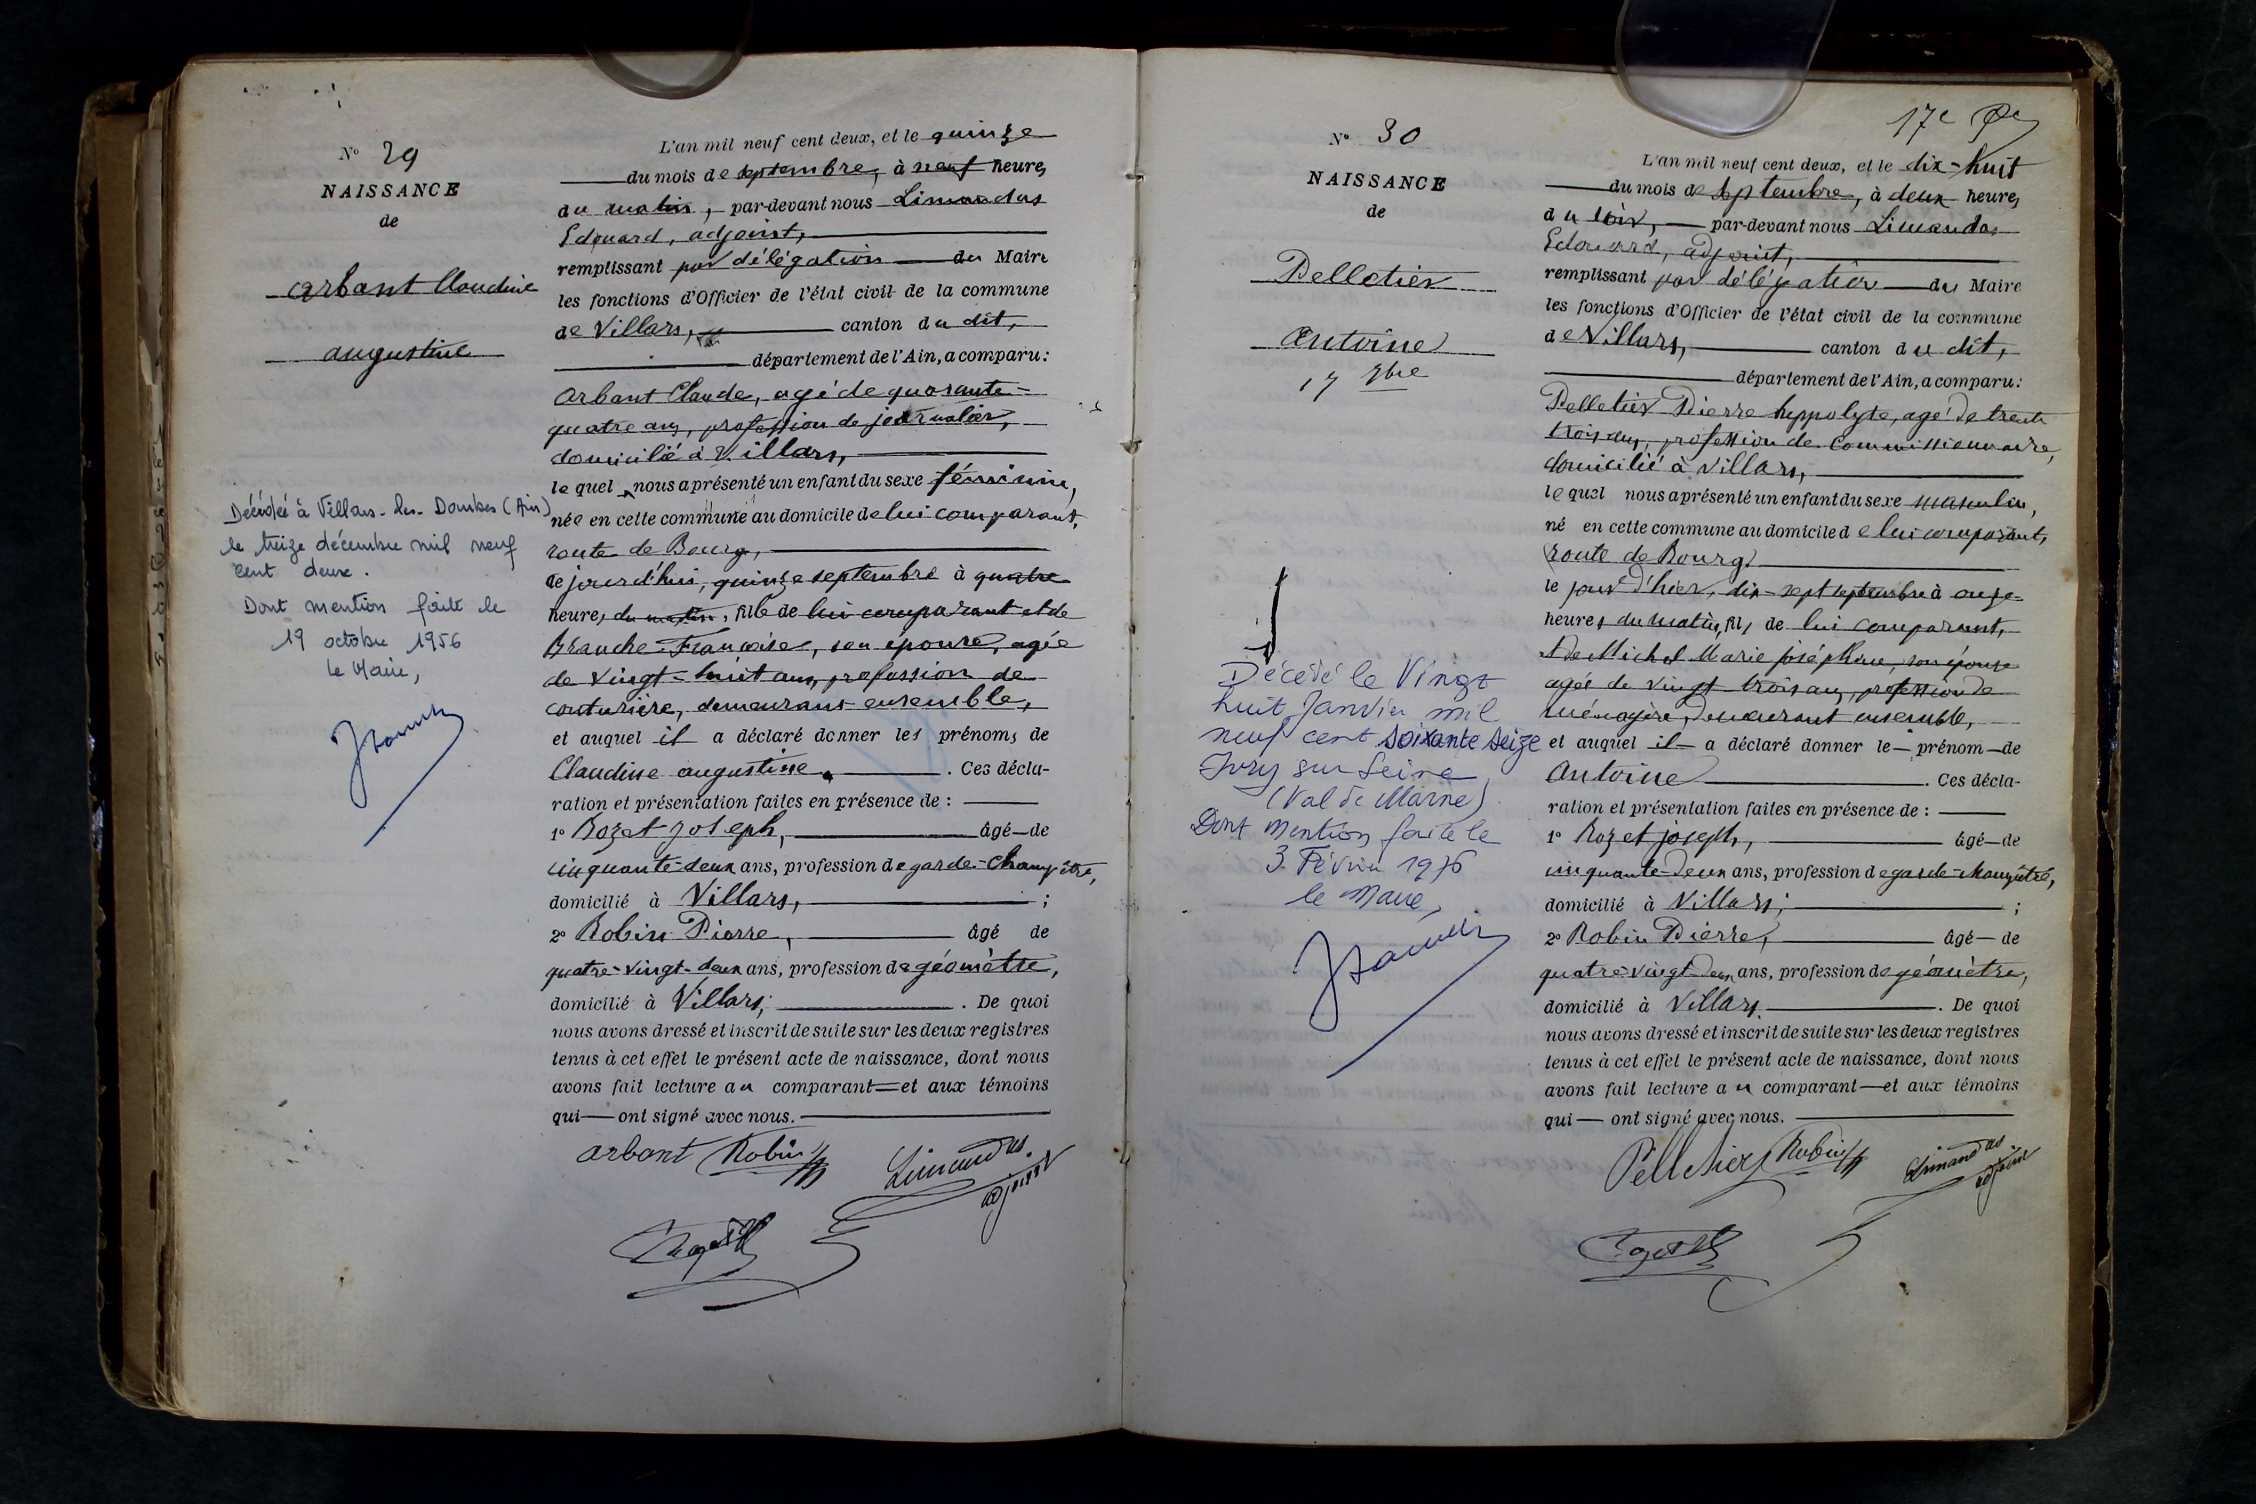 N° 29
NAISSANCE
de
Arbant Claudine
augustine
Décédée à Villars-les-Dombes (Ain)
le treize décembre mil neuf
cent deux.
Dont mention faite le
19 octobre 1956
Le Maire,
L'an mil neuf cent deux, et le quinze
du mois de septembre, à neuf heures
du matin, par-devant nous Limandas
Edouard, adjoint,
remplissant par délégation du Maire
les fonctions d'Officier de l'état civil de la commune
de Villars, canton du dit,
département de l'Ain, a comparu:
Arbant Claude, agé de quarante-
quatre ans, profession de journalier,
domicilié à Villars,
le quel nous a présenté un enfant du sexe féminin,
née en cette commune au domicile de lui comparant,
route de Bourg,
le jourd'hui, quinze septembre à quatre
heures du matin, fille de lui comparant et de
Branche Françoise, son épouse, agée
de vingt-huit ans, profession de
couturière, demeurant ensemble,
et auquel il a déclaré donner les prénoms de
Claudine augustine. Ces décla-
ration et présentation faites en présence de :
1° Rozet Joseph, âgé de
cinquante-deux ans, profession de garde-champêtre,
domicilié à Villars, ;
2° Robin Pierre, âgé de
quatre-vingt-deux ans, profession de géomètre,
domicilié à Villars; . De quoi
nous avons dressé et inscrit de suite sur les deux registres
tenus à cet effet le présent acte de naissance, dont nous
avons fait lecture au comparant et aux témoins
qui ont signé avec nous.
Arbant Robin Limandas
adjoint
17e
N° 30
NAISSANCE
de
Pelletier
Antoine
17 9bre
Décédé le Vingt
huit Janvier mil
neuf cent soixante seize
Ivry sur Seine
(Val de Marne)
Dont mention faite le
3 Février 1976
le Maire,
L'an mil neuf cent deux, et le dix-huit
du mois de septembre, à deux heures
du soir, par-devant nous Limandas
Edouard, adjoint,
remplissant par délégation du Maire
les fonctions d'Officier de l'état civil de la commune
de Villars, canton du dit,
département de l'Ain, a comparu:
Pelletier Pierre hyppolyte, agé de trente
trois ans, profession de commissionnaire,
domicilié à Villars,
le quel nous a présenté un enfant du sexe masculin,
né en cette commune au domicile de lui comparant,
route de Bourg
le jour d'hier, dix-sept septembre à onze
heures du matin, fils de lui comparant,
de Michel Marie joséphine, son épouse
agée de vingt trois ans, profession de
ménagère, demeurant ensemble,
et auquel il a déclaré donner le prénom de
Antoine . Ces décla-
ration et présentation faites en présence de :
1° Rozet joseph, âgé de
cinquante-deux ans, profession de garde-champêtre,
domicilié à Villars; ;
2° Robin Pierre, âgé de
quatre-vingt deux ans, profession de géomètre,
domicilié à Villars. . De quoi
nous avons dressé et inscrit de suite sur les deux registres
tenus à cet effet le présent acte de naissance, dont nous
avons fait lecture au comparant et aux témoins
qui ont signé avec nous.
Pelletier Robin Limandas
adjoint